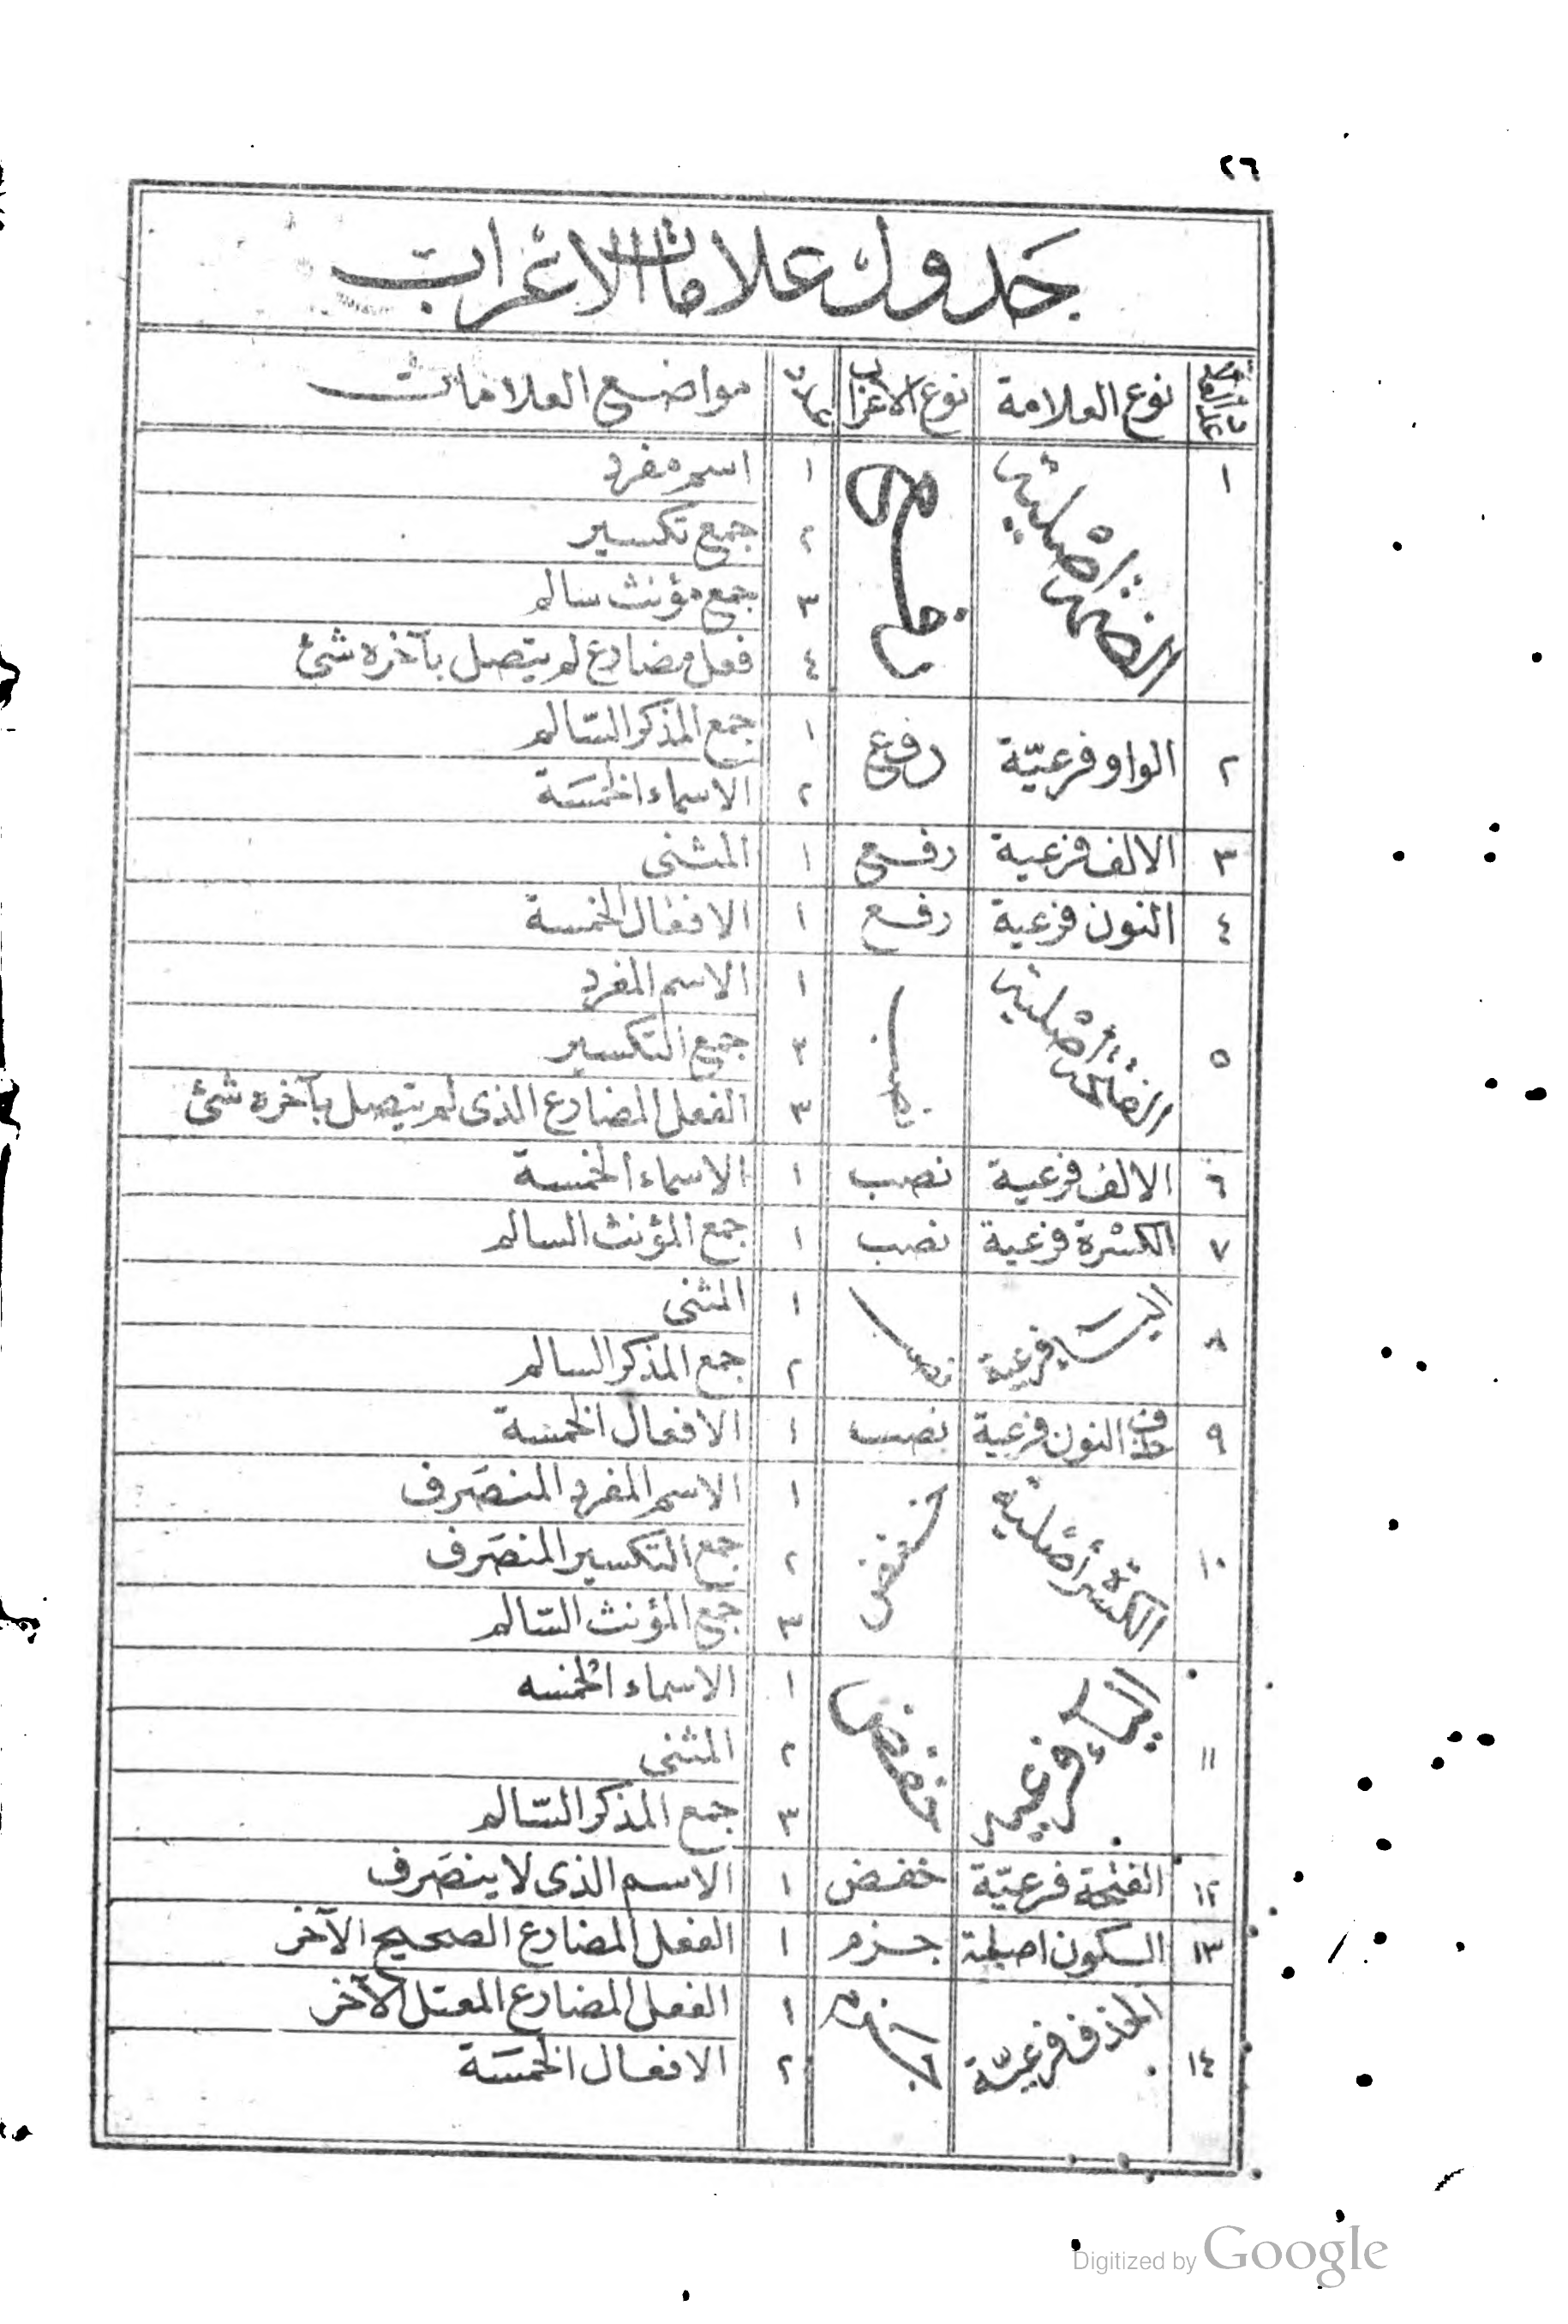 ٢٦
جَدول علامات الاعْراب
نوع العلامة نوع الاعراب مواضع العلامات
١ الضمة أصلية رفع ١ اسم مفرد
٢ جمع تكسير
٣ جمع مؤنث سالم
٤ فعل مضارع لم يتصل بآخره شئ
٢ الواو فرعيّة رفع ١ جمع المذكر السّالم
٢ الاسماء الخمسَة
٣ الالف فرعية رفع ١ المثنى
٤ النون فرعية رفع ١ الافعال الخمسة
٥ الفتحة أصلية نصب ١ الاسم المفرد
٢ جمع التكسير
٣ الفعل المضارع الذى لم يتصل بآخره شئ
٦ الالف فرعية نصب ١ الاسماء الخمسة
٧ الكسْرة فرعية نصب ١ جمع المؤنث السالم
٨ اليا فرعية نصب ١ المثنى
٢ جمع المذكر السالم
٩ حذف النون فرعية نصب ١ الافعال الخمسة
١٠ الكسْرة أصْلية خفض ١ الاسم المفرد المنصَرف
٢ جمع التكسير المنصَرف
٣ جمع المؤنث السّالم
١١ الياء فرعية خفض ١ الاسماء الخمسه
٢ المثنى
٣ جمع المذكر السّالم
١٢ الفتحة فرعيّة خفض ١ الاسم الذى لا ينصَرف
١٣ السكون اصلية جزم ١ الفعل المضارع الصحيح الآخر
١٤ الحذف فرعيّة جزم ١ الفعل المضارع المعتل الآخر
٢ الافعال الخمسَة
Digitized by Google